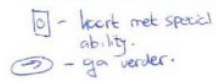 - kaart met special
ability.
- ga verder.